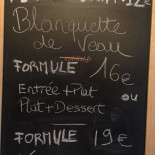 12€
Blanquette
de Veau
FORMULE 16€
Entrée + Plat ou
Plat + Dessert
FORMULE 19€